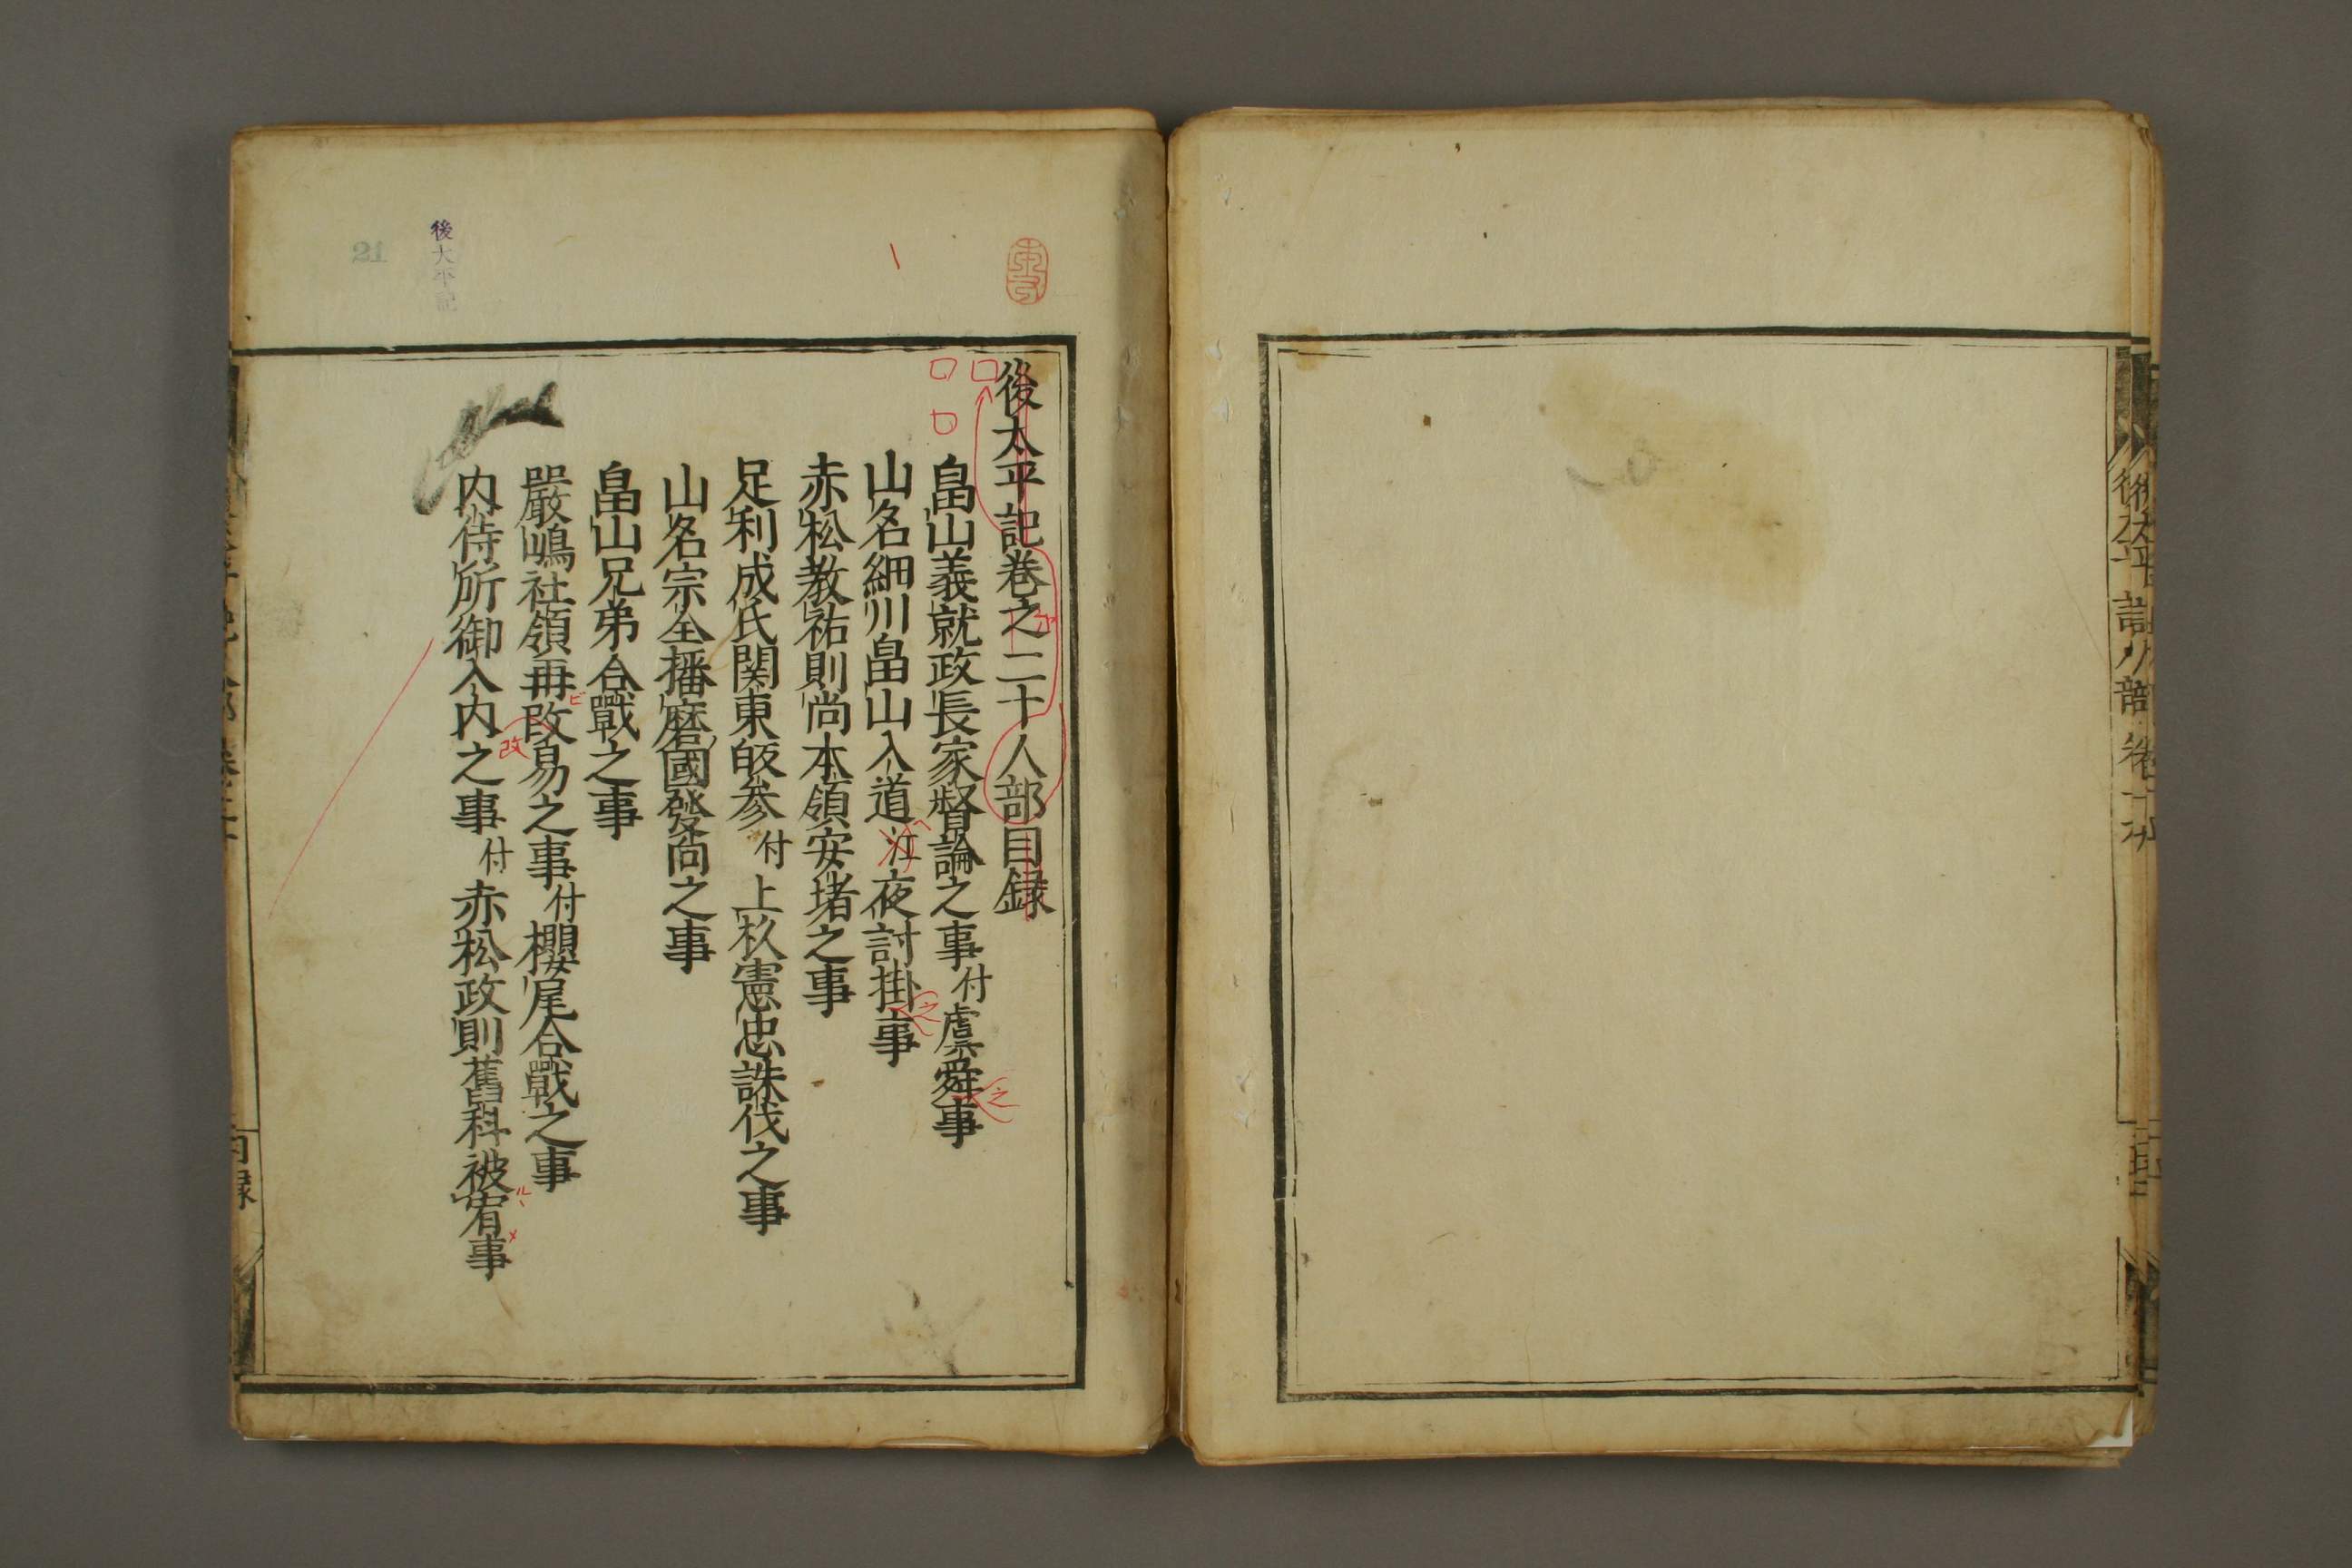 後太平記巻之二十人部目録
畠山義就政長家督論之事付虞舜事
山名細川畠山入道江夜討掛事
赤松教祐則尚本領安堵之事
足利成氏関東皈参付上杦憲忠誅伐之事
山名宗全播磨國發向之事
畠山兄弟合戰之事
嚴嶋社領再改易之事付櫻尾合戰之事
内侍所御入内之事付赤松政則舊科被宥事
後太平記
21
目録